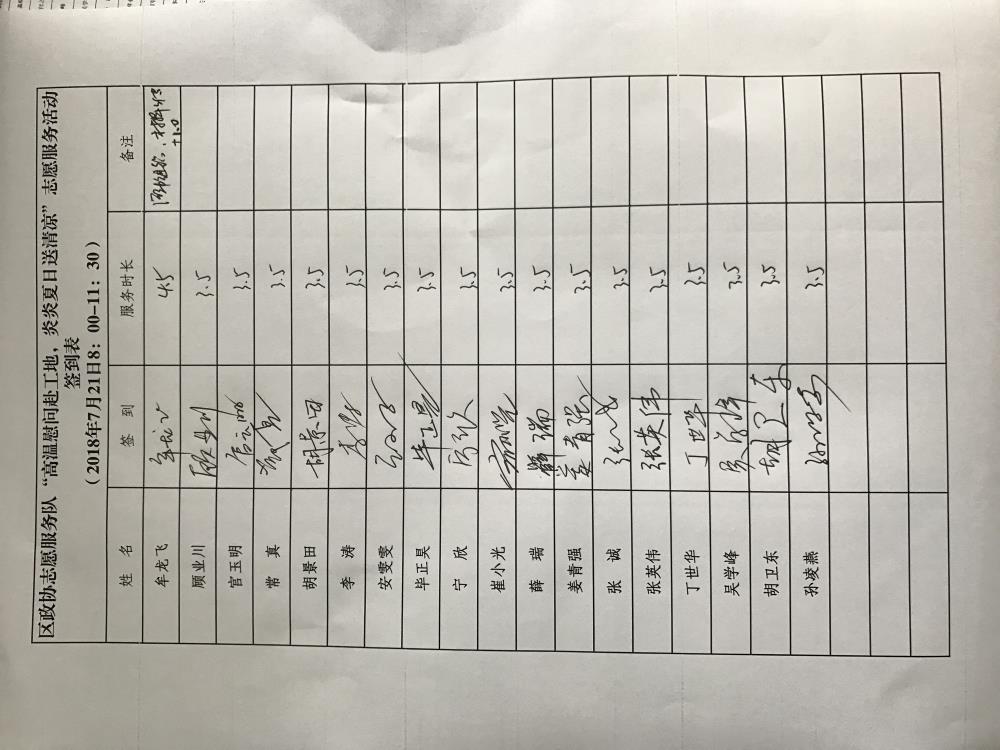 区政协志愿服务队“高温慰问赴工地，炎炎夏日送清凉”志愿服务活动
签到表
（2018年7月21日8：00-11：30）
姓 名 签 到 服务时长 备注
牟龙飞 牟龙飞 4.5 +1.0
顾业川 顾业川 3.5
官玉明 官玉明 3.5
常 真 常真 3.5
胡景田 胡景田 3.5
李 涛 李涛 3.5
安雯雯 3.5
毕正昊 毕正昊 3.5
宁 欣 宁欣 3.5
崔小光 崔小光 3.5
薛 瑞 薛瑞 3.5
姜青强 姜青强 3.5
张 诚 张诚 3.5
张英伟 张英伟 3.5
丁世华 丁世华 3.5
吴学峰 吴学峰 3.5
胡卫东 胡卫东 3.5
孙凌燕 3.5